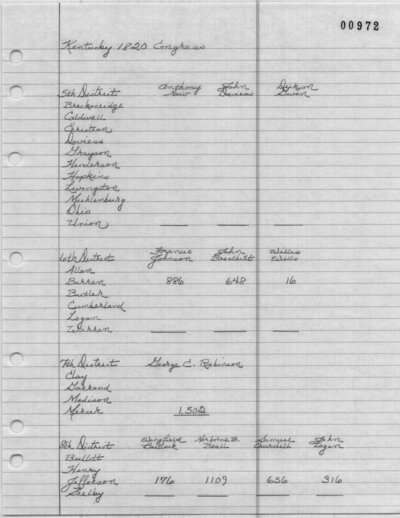 00972
Kentucky 1820 Congress
5th District Anthony New John Daviess Dickson Given
Breckenridge
Caldwell
Christian
Daviess
Grayson
Henderson
Hopkins
Livingston
Muhlenburg
Ohio
Union
6th District Francis Johnson John Breathitt Willis
Allen
Barren 886 648 16
Butler
Cumberland
Logan
Warren
7th District George C. Robinson
Clay
Garrard
Madison
Mercer 1,502
8th District Wingfield Bullock Norborne B. Beall Samuel Churchill John Logan
Bullitt
Henry
Jefferson 176 1109 656 316
Shelby